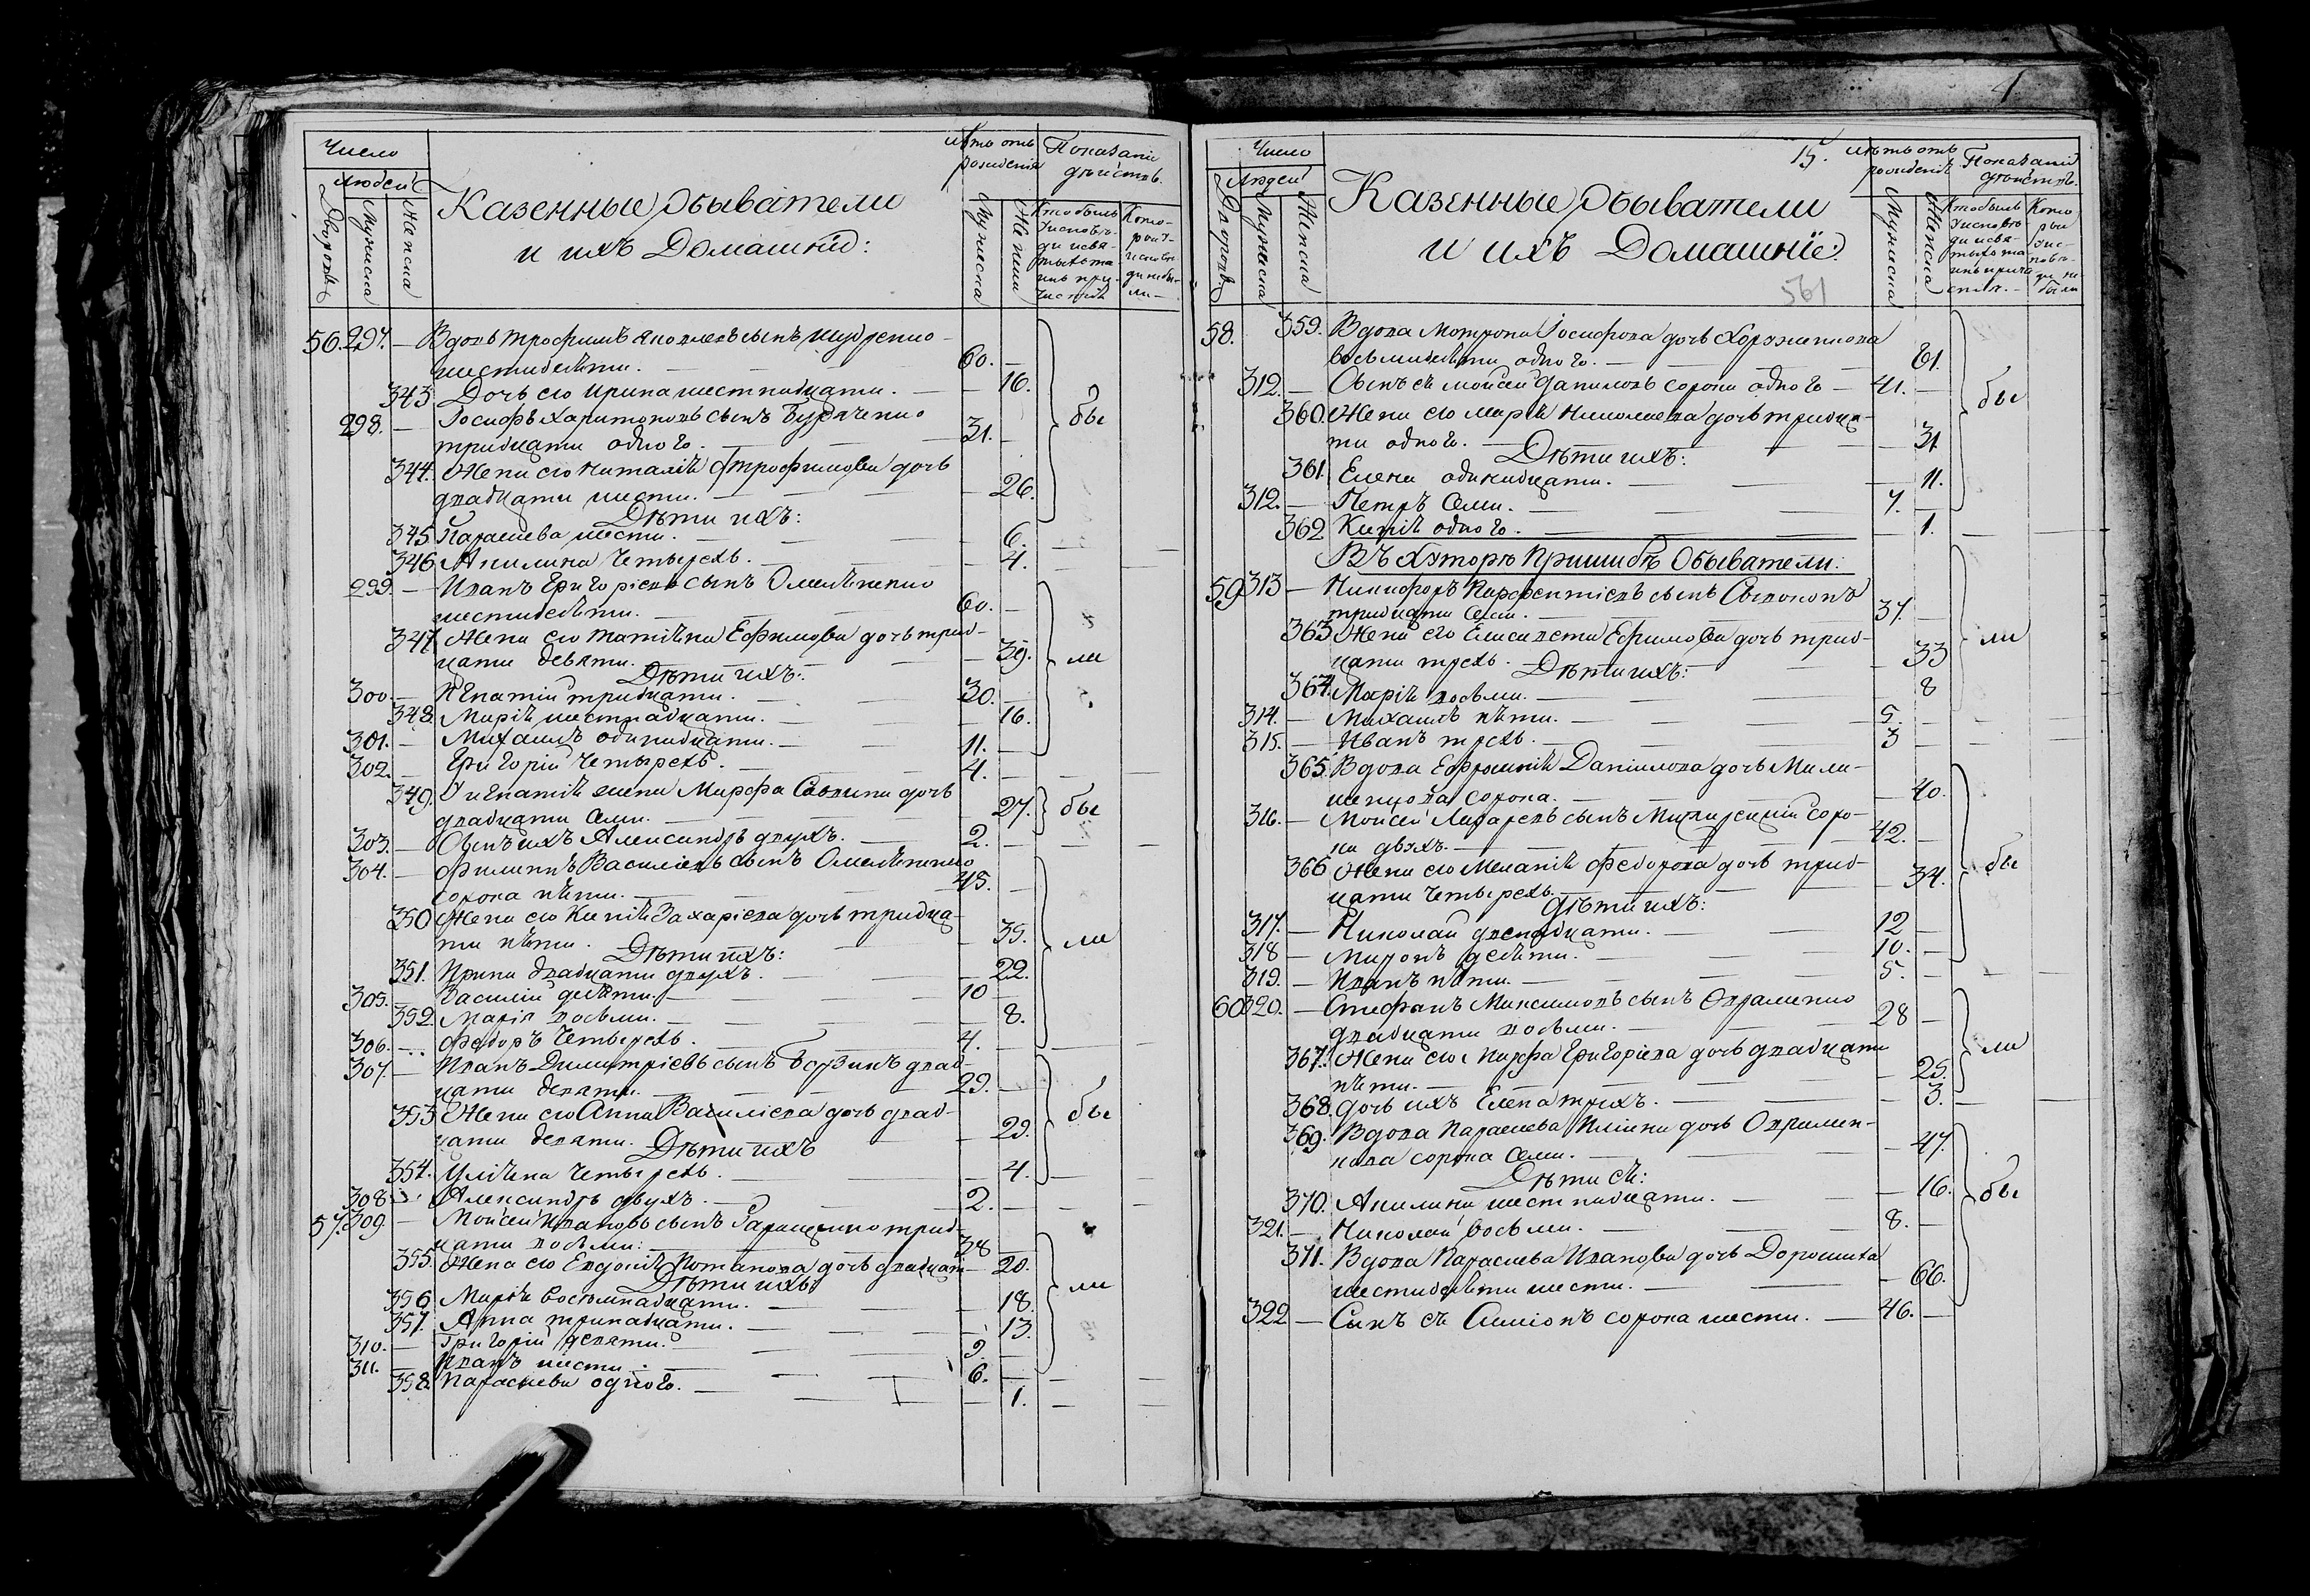 Число
Людей
Дворовъ
Мужеска
Женска
Казенные Обыватели
и ихъ Домашніи:
лѣтъ отъ
рожденія
Мужеска
Женски
Показаніе
дѣйствъ.
Кто былъ
у исповѣ-
ди и свя-
тыхъ та
инъ при-
частія
Кото-
рые у
исповѣ-
ди не бы-
ли
56. 297. — Вдовъ Трофимъ Яковлевъ сынъ
шестидесяти. — 60. —
343 Дочь его Ирина шестнадцати. — 16.
298. — Іосифъ Харитоновъ сынъ Буряченко
тридцати одного. — 31. —
бы
344. Жена его Наталія Трофимова дочь
двадцати шести. — 26.
Дѣти ихъ:
345 Параскева шести. — 6.
346 Акилина четырехъ. — 4.
299. — Иванъ Григоріевъ сынъ Омельяненко
шестидесяти. — 60. —
347. Жена его Татіяна Ефимова дочь трид-
цати девяти. — 39.
ли
Дѣти ихъ:
300 — Игнатій тридцати. — 30. —
348. Марія шестнадцати. — 16.
301. — Михаилъ одинадцати. — 11. —
302. — Григорій четырехъ. — 4. —
349. Игнатія жена Марфа Саввина дочь
двадцати семи. — 27. бы
303. — Сынъ ихъ Александръ двухъ. — 2. —
304. — Филиппъ Василіевъ сынъ Омельяненко
сорока пяти. — 45. —
350 Жена его Ксенія Захаріева дочь тридца-
ти пяти. — 35.
ли
Дѣти ихъ:
351. Ирина двадцати двухъ. — 22.
305. — Василій десяти. — 10 —
352. Марія восьми. — 8.
306. — Федоръ четырехъ. — 4. —
307. — Иванъ Димитріевъ сынъ двад-
цати девяти. — 29. —
353 Жена его Анна Василіева дочь двад-
цати девяти. — 29.
бы
Дѣти ихъ
354. Уліяна четырехъ. — 4.
308. — Александръ двухъ. — 2. —
57. 309. — Моисей Ивановъ сынъ трид-
цати восьми: — 38
355. Жена его Евдокія Потапова дочь двадцати — 20.
Дѣти ихъ
ли
356. Марія восемнадцати. — 18.
357. Анна тринадцати. — 13.
310. — Григорій девяти. — 9. —
311. — Иванъ шести. — 6. —
358. Параскева одного. — 1.
15.
Число
Людей
Дворовъ
Мужеска
Женска
Казенные Обыватели
и ихъ Домашніе:
561
лѣтъ отъ
рожденія
Мужеска
Женска
Показаній
дѣйствъ.
Кто былъ
у исповѣ
ди и свя-
тыхъ та
инъ прича
стія. —
Кото
рые
у ис-
повѣ-
ди не
были
58. 359. Вдова Мотрона Іосифова дочь
восьмидесяти одного. — 81.
312. — Сынъ ея Мойсей Даниловъ сорока одного — 41. —
бы
360. Жена его Марія Николаева дочь тридца-
ти одного. — 31
Дѣти ихъ:
361. Елена одинадцати. — 11.
312. — Петръ семи. — 7. —
362. Ксенія одного. — 1.
Въ Хуторѣ Пришибѣ Обыватели:
59 313 — Никифоръ Парфентіевъ сынъ
тридцати семи. — 37. —
363 Жена его Елисавета Ефимова дочь трид-
цати трехъ. — 33
ли
Дѣти ихъ:
364. Марія восьми. — 8
314. — Михаилъ пяти. — 5. —
315. — Иванъ трехъ. — 3 —
365. Вдова Ефросинія Даніилова дочь
сорока. — 40.
316. — Моисей Лазаревъ сынъ соро-
ка двухъ. — 42. —
366 Жена его Меланія Федорова дочь трид-
цати четырехъ. — 34.
бы
Дѣти ихъ:
317. — Николай двенадцати. — 12 —
318 — Миронъ десяти. — 10. —
319. — Иванъ пяти. — 5. —
60 320. — Стефанъ Максимовъ сынъ Охрименко
двадцати восьми. — 28 —
367. Жена его Марфа Григоріева дочь двадцати
пяти. — 25.
ли
368. Дочь ихъ Елена трехъ. — 3.
369. Вдова Параскева Иліина дочь Охримен-
кова сорока семи. — 47.
Дѣти ея:
370. Акилина шестнадцати. — 16.
бы
321. — Николай восьми. — 8. —
371. Вдова Параскева Иванова дочь
шестидесяти шести. — 66.
322 — Сынъ ея Симіонъ сорока шести. — 46. —